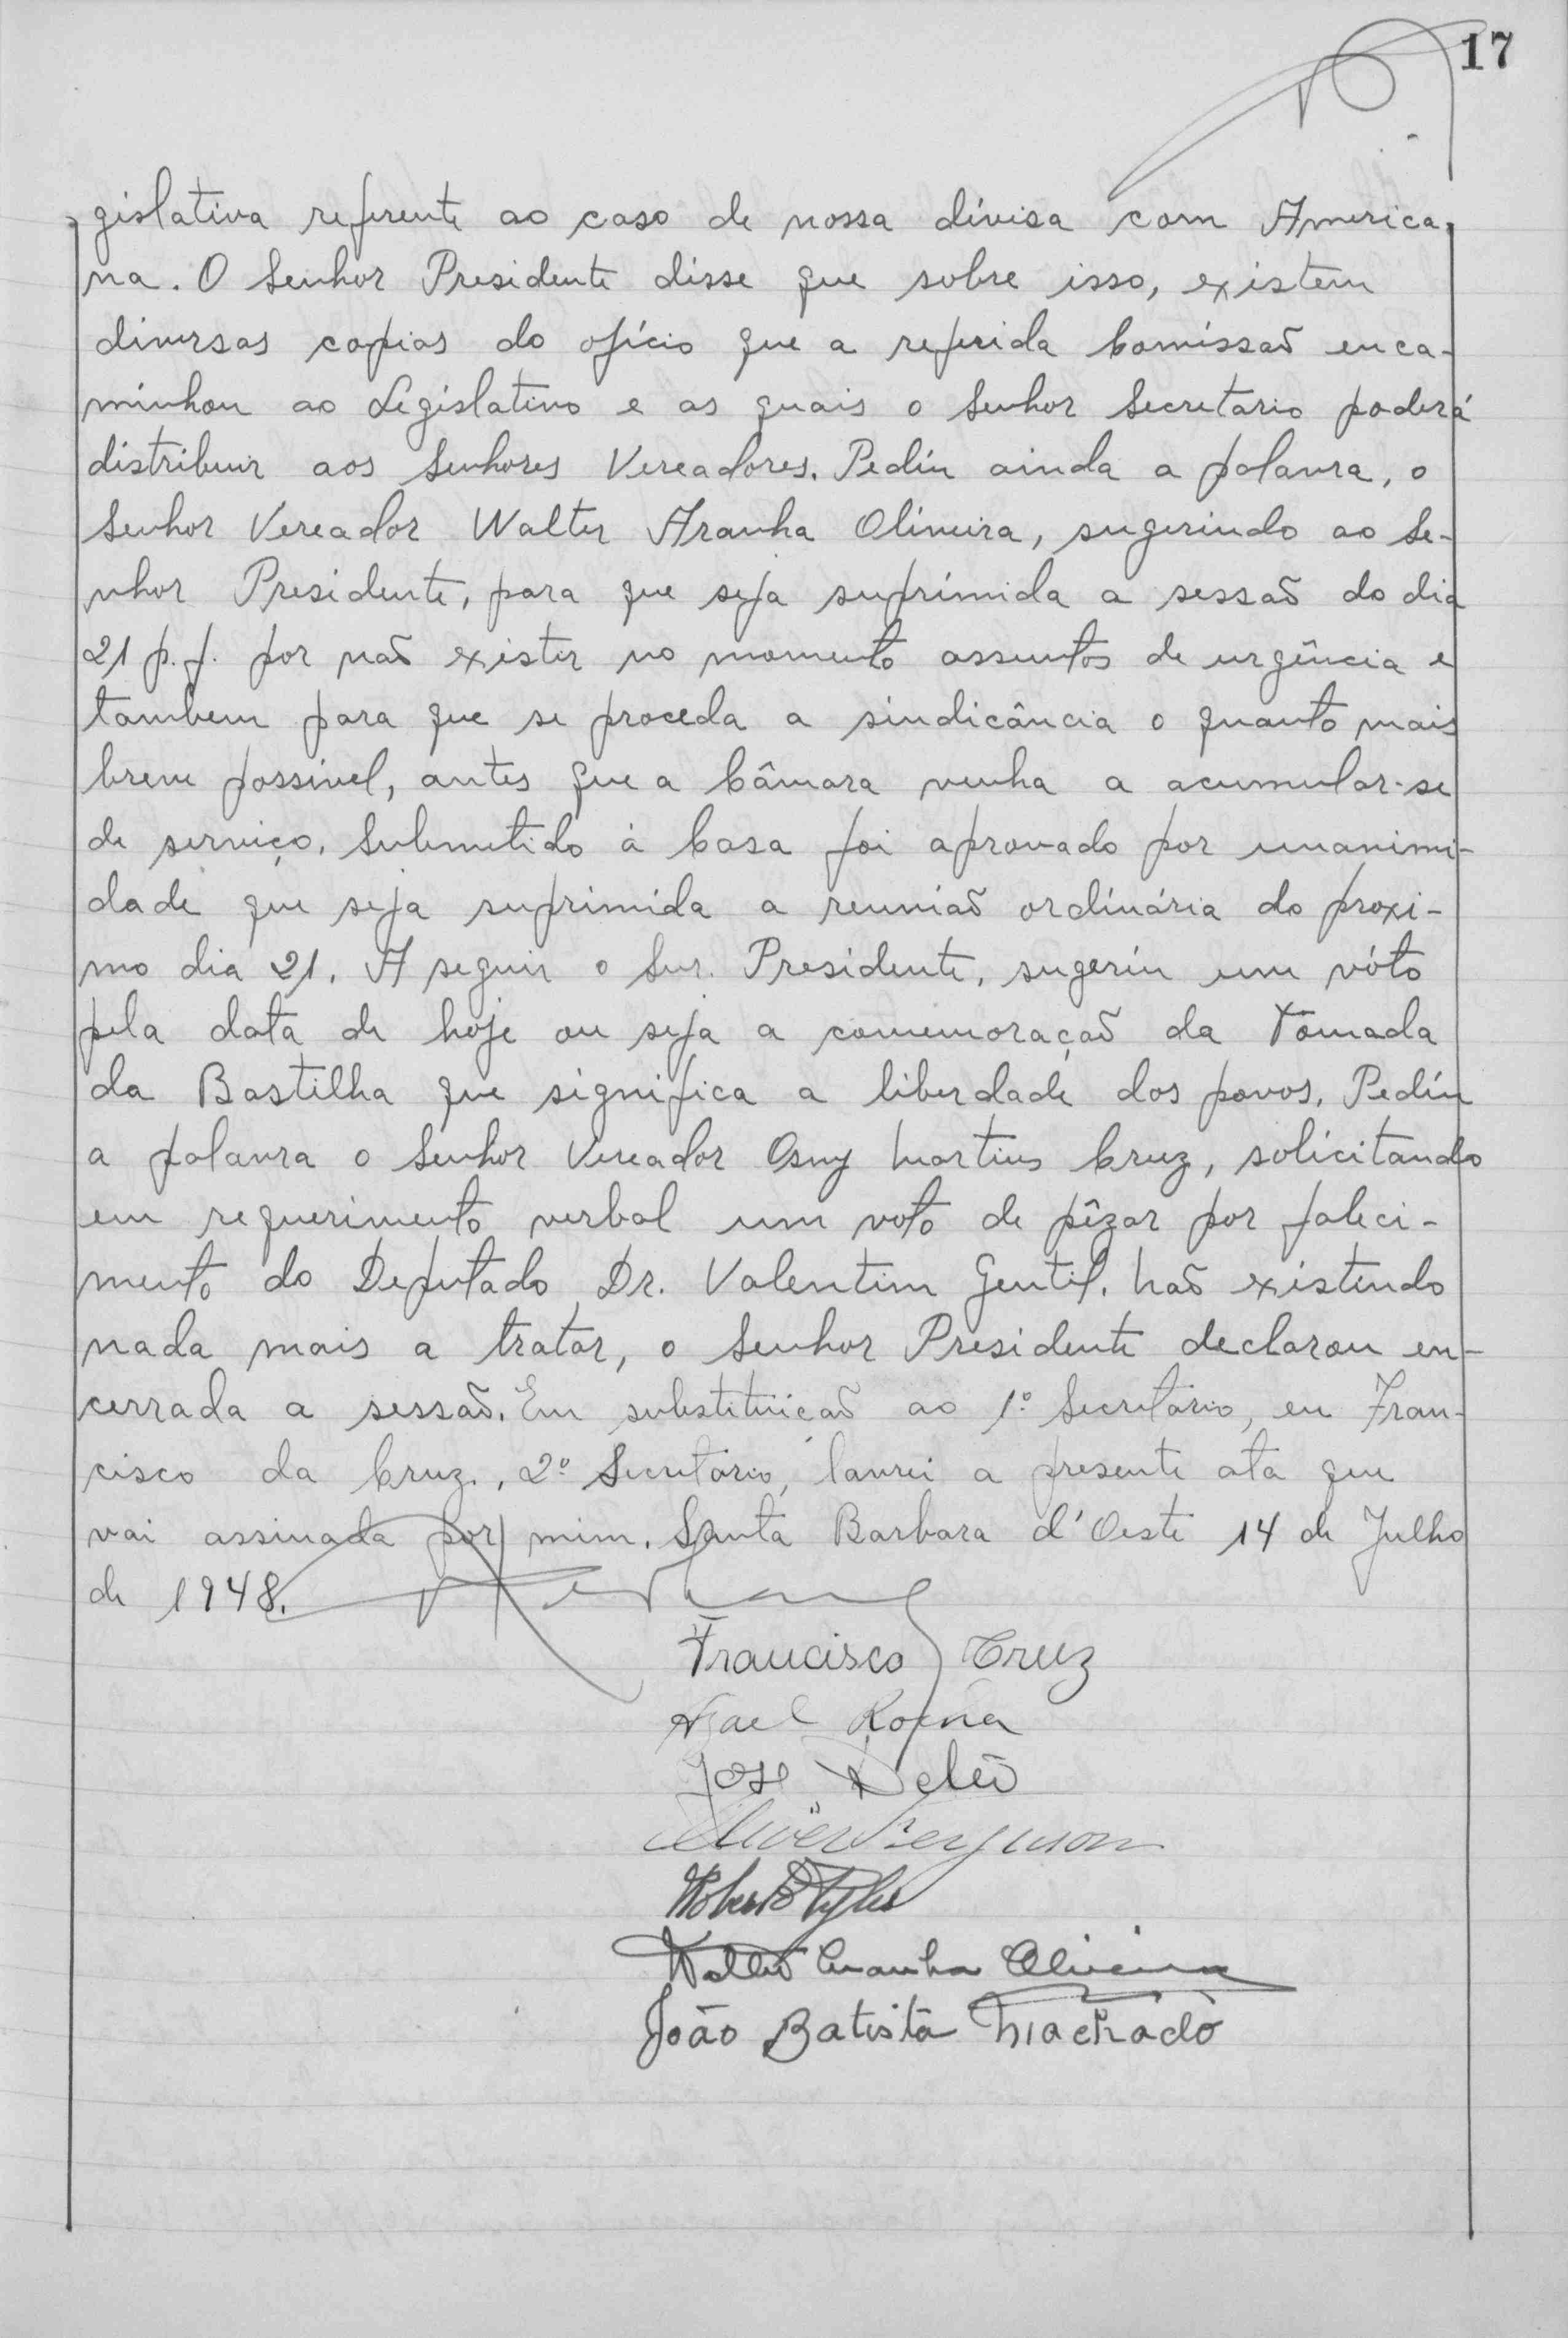 17
gislativa referente ao caso de nossa divisa com America-
na. O Senhor Presidente disse que sobre isso, existem
diversas copias do ofício que a referida Comissão enca-
minhou ao Legislativo e as quais o Senhor Secretario poderá
distribuir aos Senhores Vereadores. Pediu ainda a palavra, o
Senhor Vereador Walter Aranha Oliveira, sugerindo ao Se-
nhor Presidente, para que seja suprimida a sessão do dia
21 p.f. por não existir no momento assuntos de urgência e
tambem para que se proceda a sindicância o quanto mais
breve possivel, antes que a Câmara venha a acumular-se
de serviço. Submetido à Casa foi aprovado por unanimi-
dade que seja suprimida a reunião ordinária do proxi-
mo dia 21. A seguir o Snr. Presidente, sugeriu um vóto
pela data de hoje ou seja a comemoração da Tomada
da Bastilha que significa a liberdade dos povos. Pediu
a palavra o Senhor Vereador Osny Martins Cruz, solicitando
em requerimento verbal um voto de pêzar por faleci-
mento do Deputado Dr. Valentim Gentil. Não existindo
nada mais a tratar, o Senhor Presidente declarou en-
cerrada a sessão. Em substituição ao 1º Secretário, eu Fran-
cisco da Cruz, 2º Secretário, lavrei a presente ata que
vai assinada por mim. Santa Barbara d'Oeste 14 de Julho
de 1948.
Francisco Cruz
José
Ferguson
Walter Aranha Oliveira
João Batista Machado